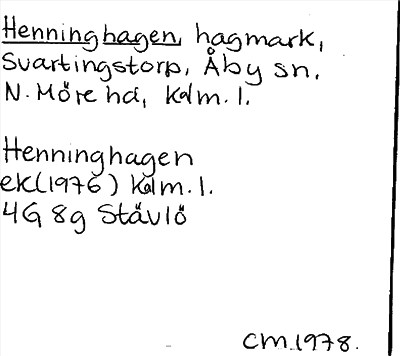 Henninghagen, hagmark,
Svartingstorp, Åby sn,
N. Möre hd, Kalm. l.
Henninghagen
ek(1976) Kalm. l.
4G 8g Stävlö
CM.1978.